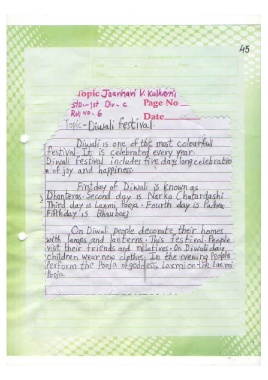 45
Topic Jaanhavi V. Kulkarni
Std:-1st Div-C Page No
Roll no-6 Date
Topic-Diwali festival.
Diwali is one of the most colourful
festival. It is celebrated every year.
Diwali festival includes five days long celebration
of joy and happiness.
First day of Diwali is known as
Dhanteras. Second day is Narka Chatardashi.
Third day is Laxmi Pooja. Fourth day is Padva.
Fifth day is Bhaubeej.
On Diwali people decorate, their homes
with lamps and lanterns. This festival People
visit their friends and relatives. On Diwali day,
children wear new clothes. In the evening People
Perform the Pooja of goddess, Laxmi on the Laxmi
Pooja.